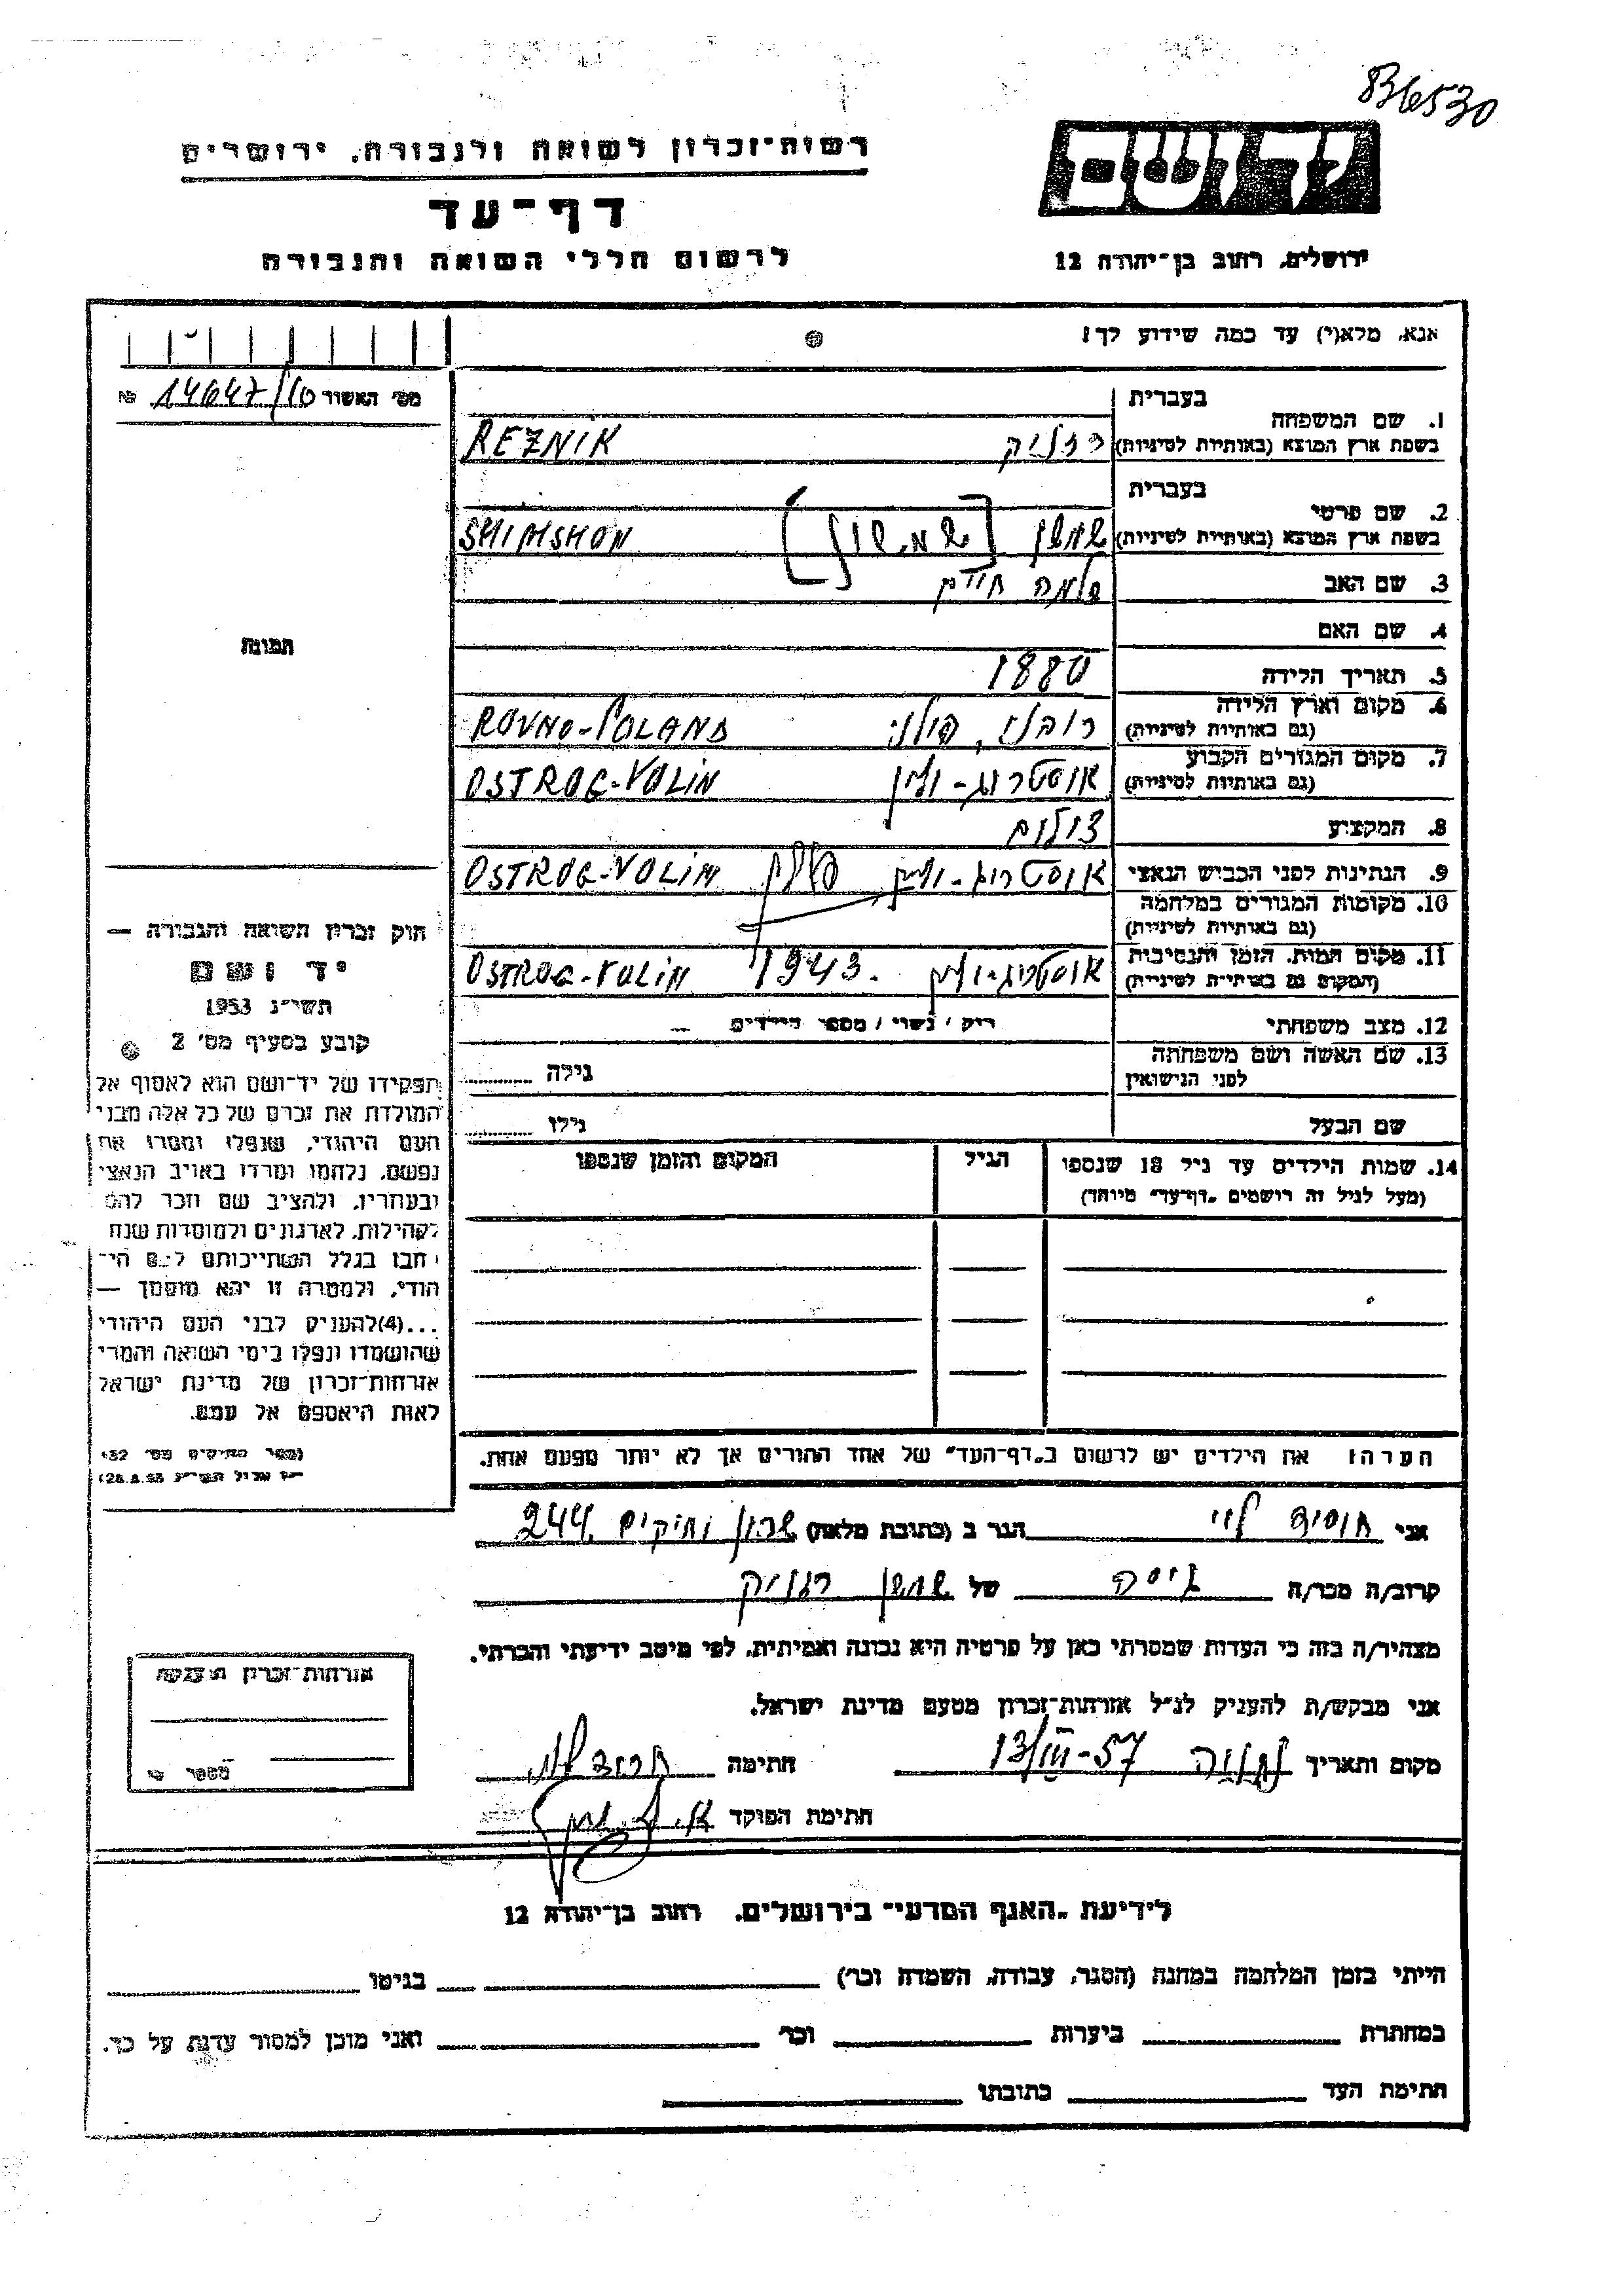 B6530
רשות־זכרון לשואה ולגבורה, ירושלים
יד ושם
דף־עד
לרשום חללי השואה והגבורה
ירושלים, רחוב בן־יהודה 12
אנא, מלא(י) עד כמה שידוע לך!
מס' האשור 14647/10 №
בעברית
1. שם המשפחה
בשפת ארץ המוצא (באותיות לטיניות) רזניק REZNIK
בעברית
2. שם פרטי
בשפת ארץ המוצא (באותיות לטיניות) שמשון [שמשון] SHIMSHON
3. שם האב שלמה חיים
4. שם האם
תמונה
5. תאריך הלידה 1880
6. מקום וארץ הלידה רובנו, פולניה ROVNO-POLAND
(גם באותיות לטיניות)
7. מקום המגורים הקבוע אוסטרוג-ולין OSTROG-VOLIN
(גם באותיות לטיניות)
8. המקצוע צילום
9. הנתינות לפני הכבוש הנאצי אוסטרוג-ולין פולין OSTROG-VOLIN
10. מקומות המגורים במלחמה
(גם באותיות לטיניות)
11. מקום המות, הזמן והנסיבות אוסטרוג-ולין 1943. OSTROG-VOLIN
(המקום גם באותיות לטיניות)
12. מצב משפחתי רוק / נשוי / מספר הילדים
13. שם האשה ושם משפחתה גילה
לפני הנישואין
שם הבעל גילו
14. שמות הילדים עד גיל 18 שנספו הגיל המקום והזמן שנספו
(מעל לגיל זה רושמים "דף־עד" מיוחד)
חוק זכרון השואה והגבורה —
יד ושם
תשי"ג 1953
קובע בסעיף מס' 2
תפקידו של יד־ושם הוא לאסוף אל
המולדת את זכרם של כל אלה מבני
העם היהודי, שנפלו ומסרו את
נפשם, נלחמו ומרדו באויב הנאצי
ובעוזריו, ולהציב שם וזכר להם
לקהילות, לארגונים ולמוסדות שנח
חבו בגלל השתייכותם לעם הי־
הודי, ולמטרה זו יהא מוסמך —
...(4) להעניק לבני העם היהודי
שהושמדו ונפלו בימי השואה והמרי
אזרחות־זכרון של מדינת ישראל
לאות היאספם אל עמם.
(ספר החוקים מס' 132
הערה: את הילדים יש לרשום ב"דף־העד" של אחד ההורים אך לא יותר מפעם אחת.
אני לוי הגר ב (כתובת מלאה) 244
קרוב/ה מכר/ה גיסה של שמשון רזניק
מצהיר/ה בזה כי העדות שמסרתי כאן על פרטיה היא נכונה ואמיתית, לפי מיטב ידיעתי והכרתי.
אני מבקש/ת להעניק לנ"ל אזרחות־זכרון מטעם מדינת ישראל.
מקום ותאריך נתניה 13/III-57 חתימה
חתימת הפוקד
אזרחות־זכרון הוענקה
מספר
לידיעת "האגף המדעי" בירושלים, רחוב בן־יהודה 12
הייתי בזמן המלחמה במחנה (הסגר, עבודה, השמדה וכו') בגיטו
במחתרת ביערות וכו' ואני מוכן למסור עדות על כך.
חתימת העד כתובתו